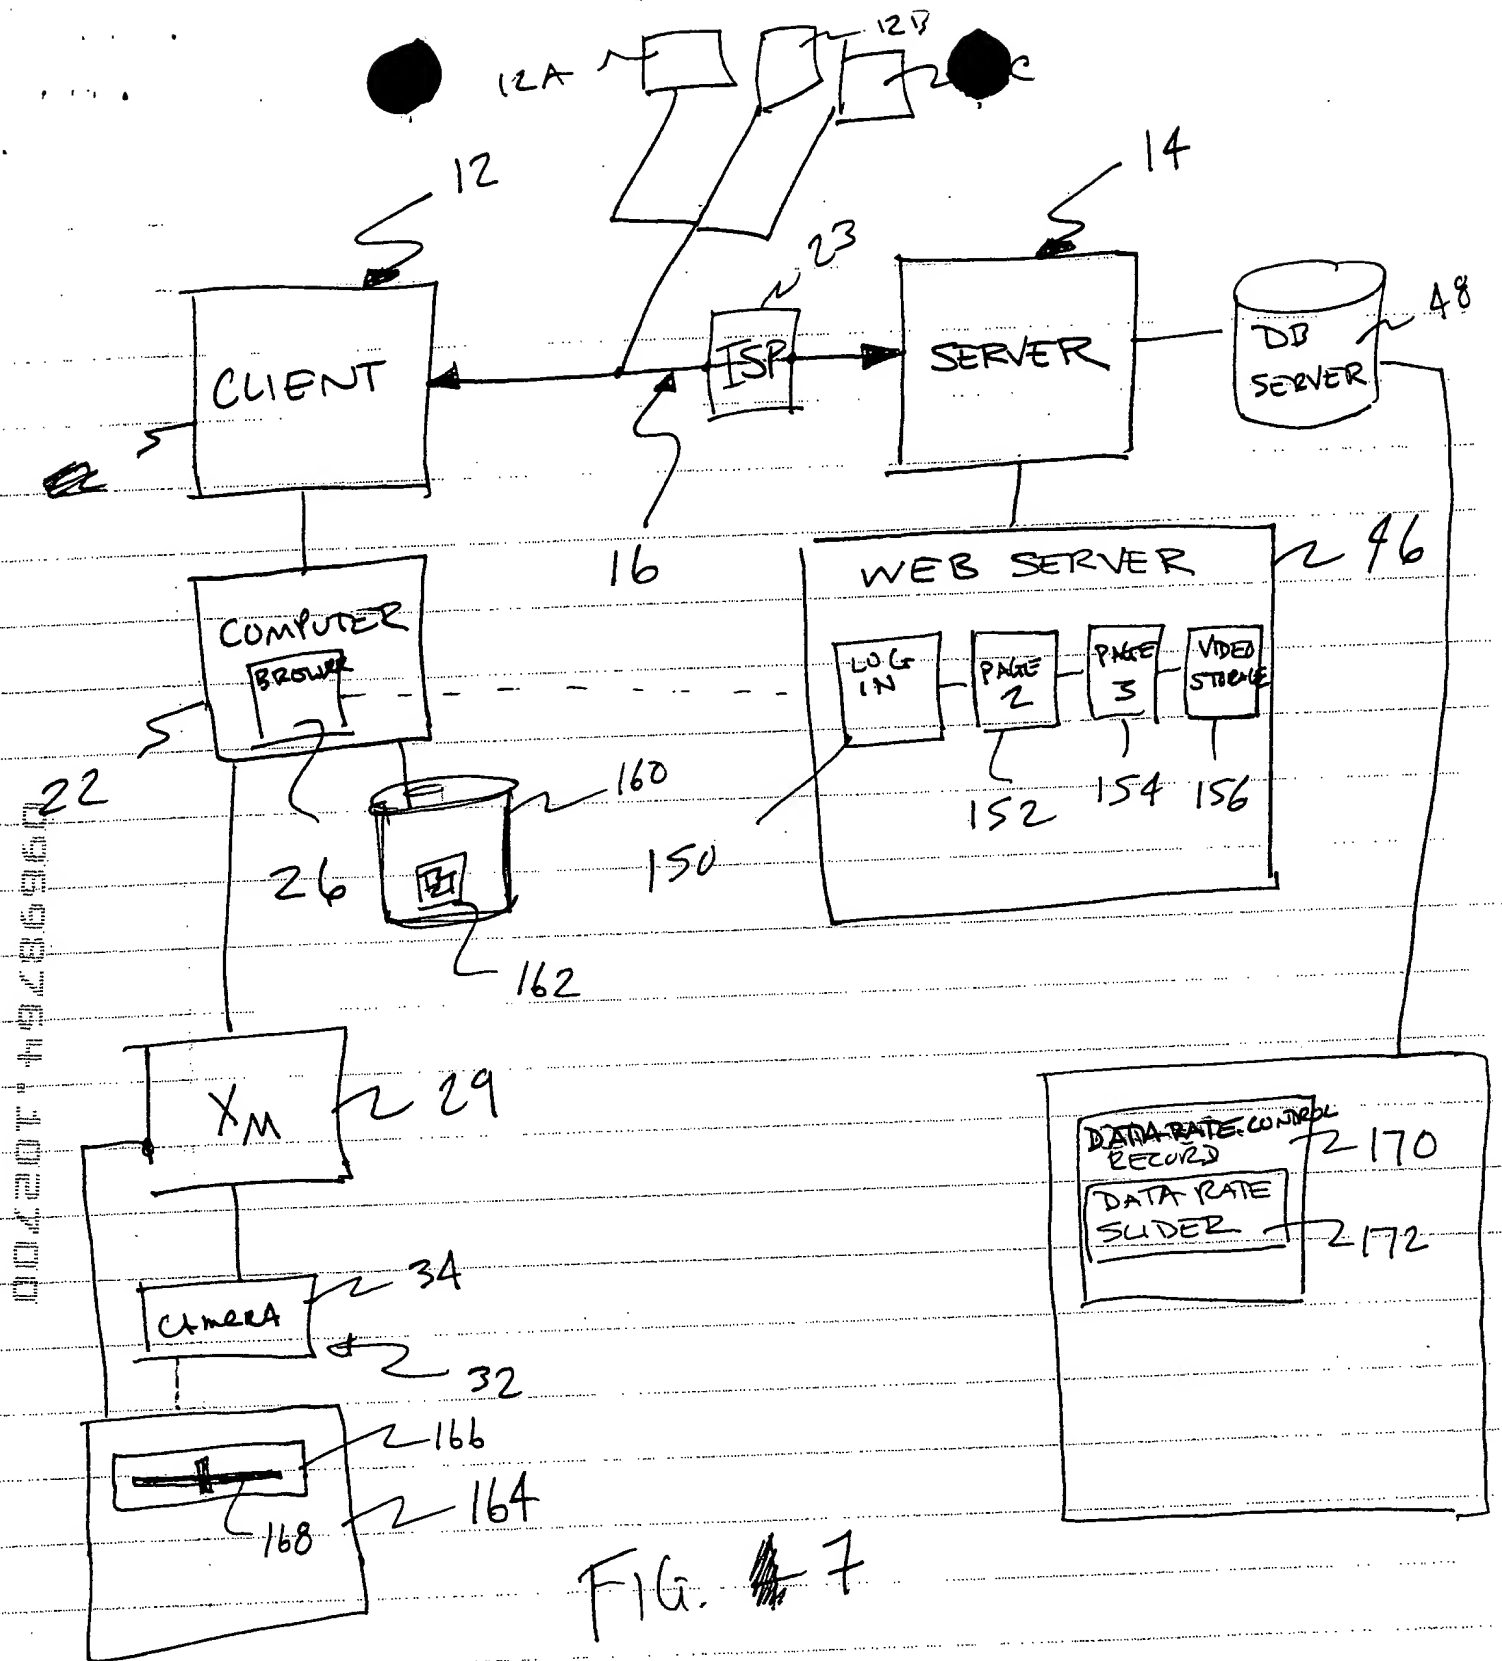 12A
12B
C
12
14
23
CLIENT
ISP
SERVER
DB
SERVER
48
16
WEB SERVER
46
COMPUTER
BROWSER
LOG
IN
PAGE
2
PAGE
3
VIDEO
STORAGE
22
26
160
150
152
154
156
162
XM
29
DATA RATE CONTROL
RECORD
170
DATA RATE
SLIDER
172
CAMERA
34
32
166
168
164
FIG. 7